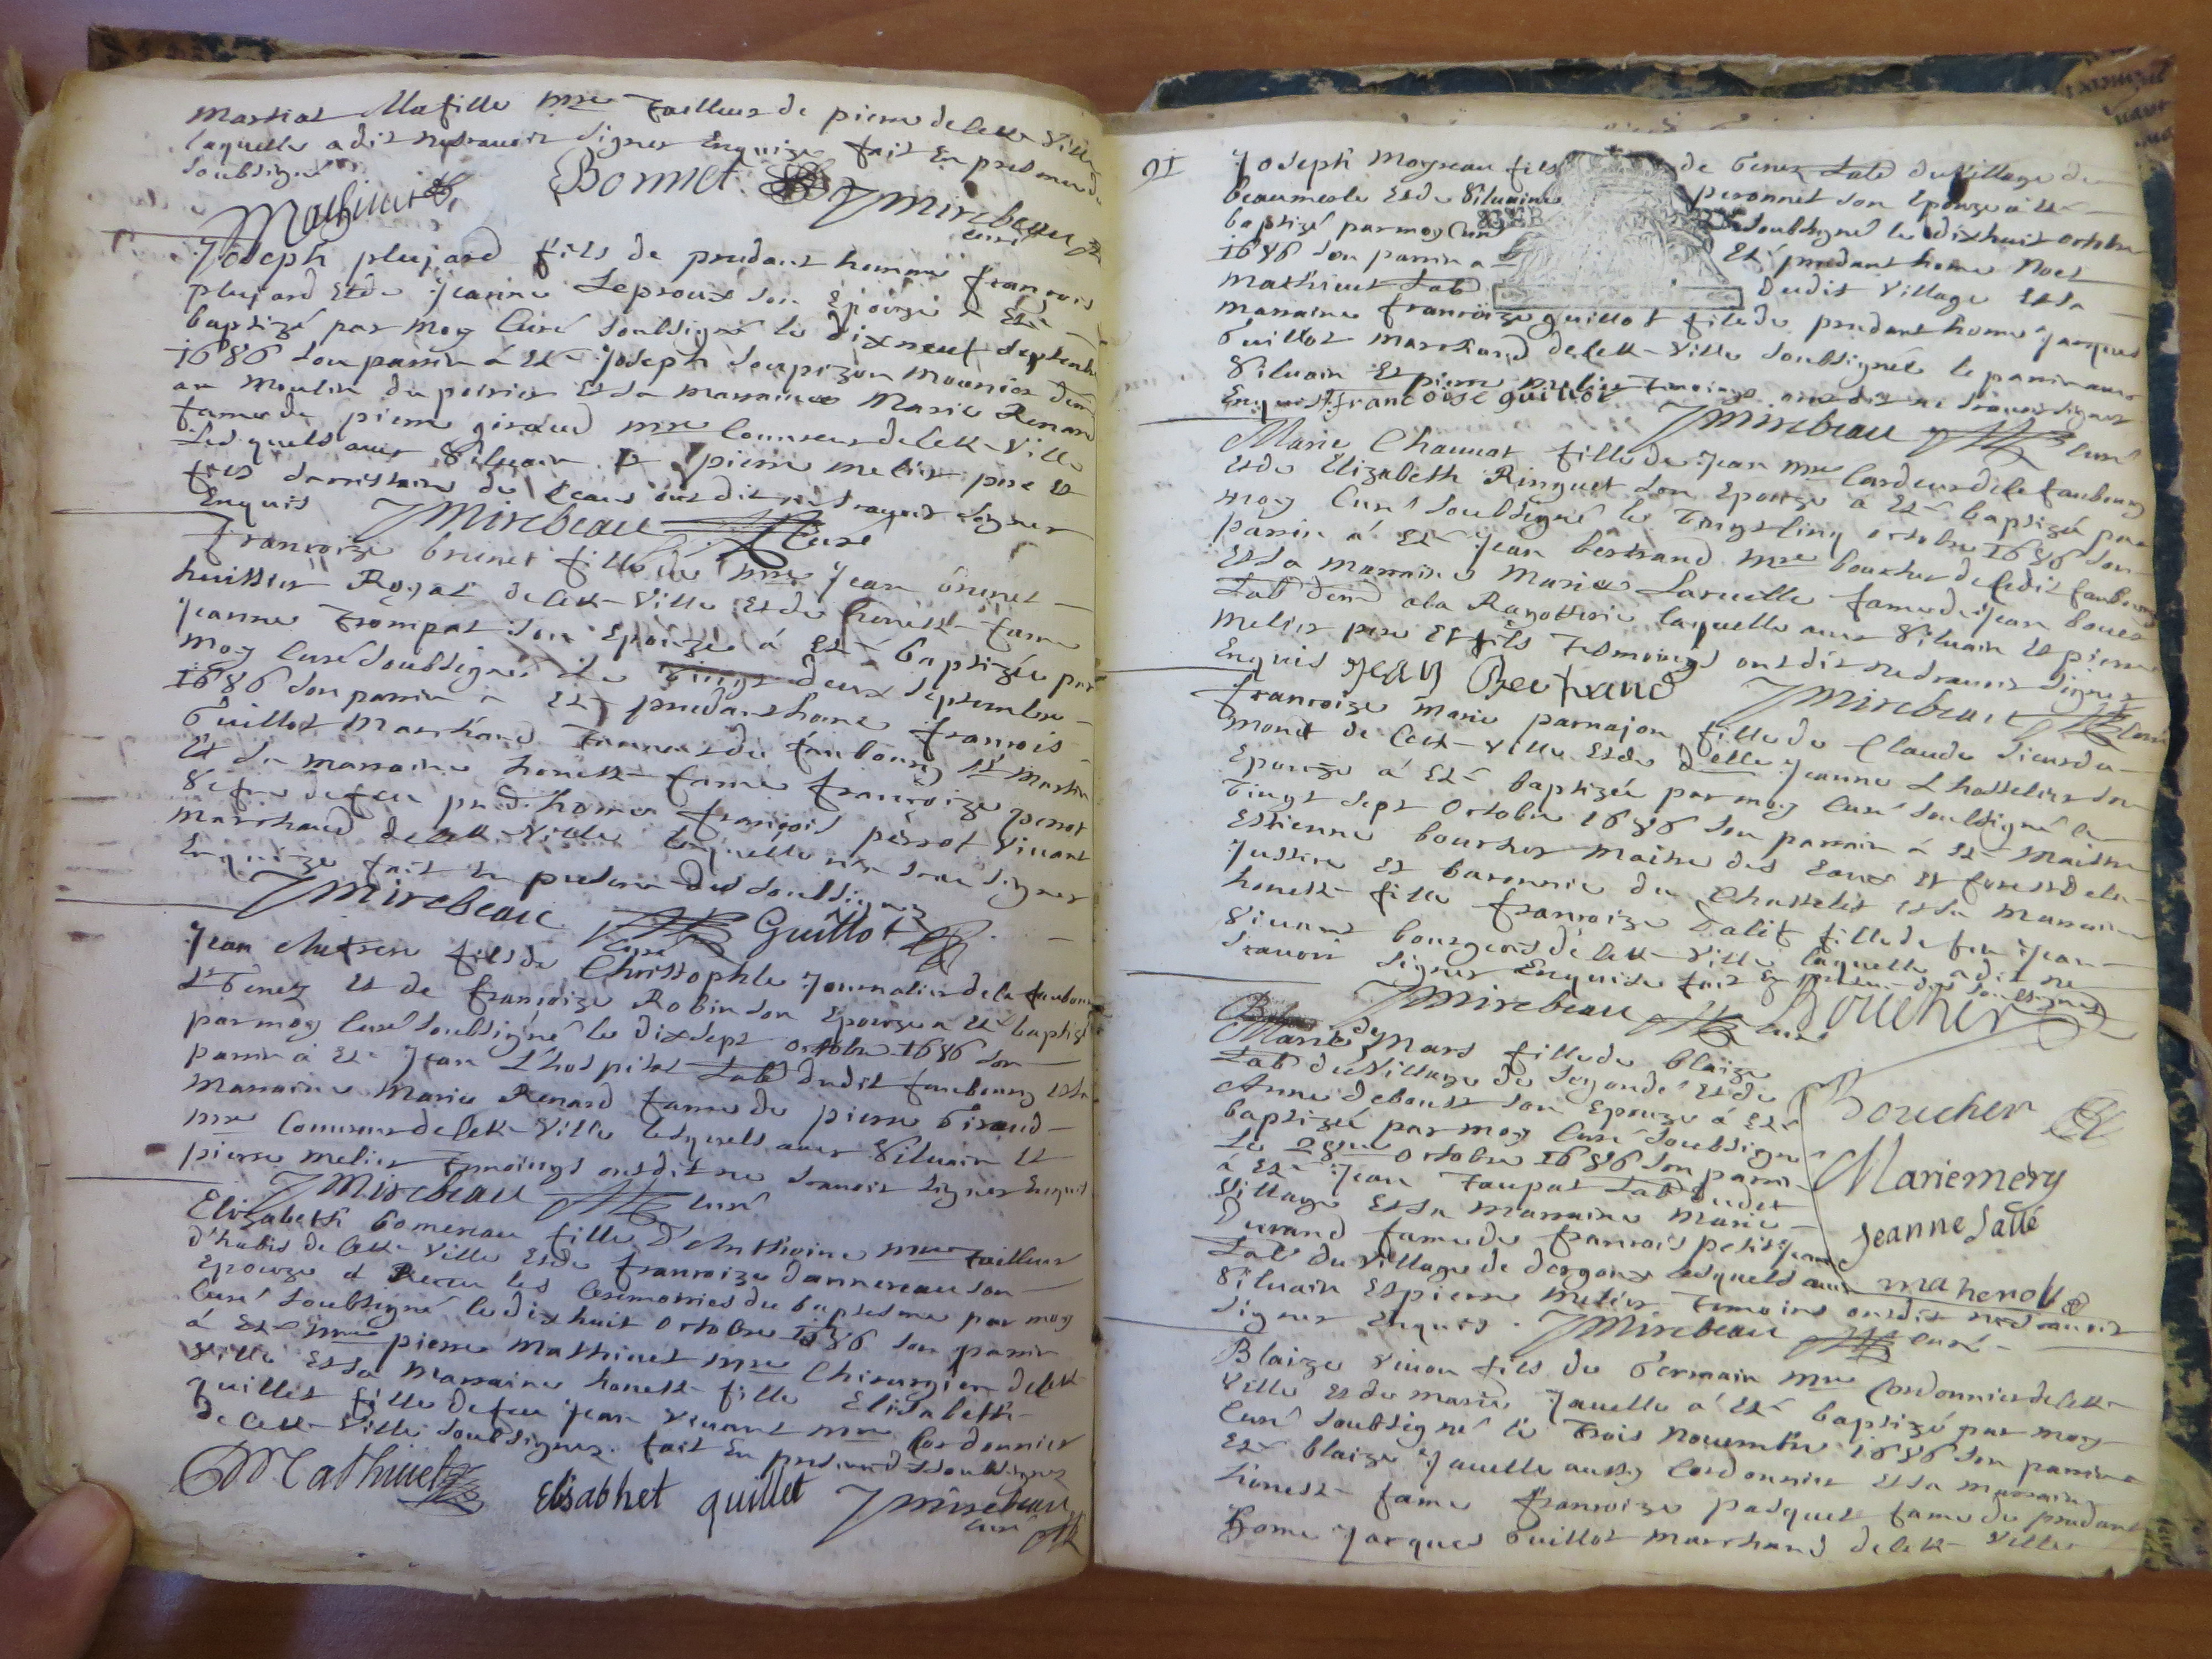 Martial Mafille mre Tailleur de pierre de cette ville
laquelle a dit ne scauoir signer Enquize fait En presence
soubsignés
Mathiuet Bonnet JMirebeau
curé
Joseph plujard fils de prudant homme françois
plujard Et de Jeanne Leproux son Epouze a Esté
baptizé par moy Curé soubsigné le dixneuf septembre
1686 son parrin a Esté Joseph Loupizon mounier dem
au Moulin du poirier Et sa marraine Marie Renard
fame de pierre giraud mre Couureur de Cette Ville
Lesquels auec Siluain Et pierre melier pere Et
fils sacristains de ceans ont dit ne scauoir signer
Enquis JMirebeau Curé
françoize brunet fille de mre Jean brunet
huissier Royal de Cette Ville Et de honeste fame
Jeanne Trompat son Epouze á Esté baptizée par
moy Curé soubsigné le Vingt deux septembre
1686 son parrin a Esté prudant home françois
Guillot Marchand Tanneur du faubourg St Martin
Et sa marraine honeste fame françoize perrot
Vefue de feu prud. home françois perrot Viuant
marchand de cette Ville laquelle n'a sceu signer
Enquize fait En presence des soubsignez
JMirebeau Curé Guillot
Jean Chersen fils de Christophle Journalier de le faubourg
St Genez Et de françoize Robin son Epouze a Esté baptizé
par moy Curé soubsigné le dixsept octobre 1686 son
parrin á Esté Jean L'hospital Lab dudit faubourg Et sa
Marraine Marie Renard fame de pierre Giraud
mre Couureur de Cette Ville lesquels auec Siluain Et
pierre melier Temoings ont dit ne scauoir signer Enquis
JMirebeau Curé
Elizabeth Gomereau fille d'Anthoine mre Tailleur
d'habis de Cette Ville Et de françoize dannereau son
Epouze a Receu les Ceremonies du baptesme par moy
Curé soubsigné le dix huit octobre 1686 son parrin
á Esté mre pierre Mathiuet mre Chirurgien de Cette
Ville Et sa Marraine honeste fille Elisabeth
quillet fille de feu Jean Viuant mre Cordonnier
de Cette Ville soubsignez fait En presence des soubsignez
Mathiuet Elisabhet quillet JMirebeau
curé
91
Joseph Moyreau fils de Genez Lab du Village de
beaumerle Et de Siluaine peronnet son Epouze a Esté
baptizé par moy Curé soubsigné le dixhuit octobre
1686 son parrin a Esté prudant home Noel
Mathiuet Lab dudit Village Et sa
marraine françoize guillot fille de prudant home Jacques
Guillot marchand de Cette Ville soubsignée le parrin auec
Siluain Et pierre melier Temoings ont dit ne scauoir signer
Enquis françoise guillot
JMirebeau Curé
Marie Chaumat fille de Jean mre Cardeur de le faubourg
Et de Elizabeth Ringuet son Epouze a Esté baptizée par
moy Curé soubsigné le Vingt Cinq octobre 1686 son
parrin a Esté Jean bertrand mre boucher de ledit faubourg
Et sa marraine Marie Laruelle fame de Jean bouer
Lab dem a la Ragotterie laquelle auec Siluain Et pierre
Melier pere Et fils Tesmoings ont dit ne scauoir signer
Enquis Jean Bertrand JMirebeau Curé
françoize Marie parnajon fille de Claude sieur du
mond de Cette Ville Et de delle Jeanne Lhosselier son
Epouze á Esté baptizée par moy Curé soubsigné le
Vingt sept octobre 1686 son parrin a Esté Maistre
Estienne boucher Maitre des Eaux Et forests de la
Justice Et baronnie du Chastelet Et sa Marraine
honeste fille françoize Dalit fille de feu Jean
Viuant bourgeois de Cette Ville laquelle a dit ne
scauoir signer Enquise fait En presence des soubsignez
JMirebeau Curé Boucher
Marie de Mars fille de blaize
Lab du Village de Segonde Et de
Anne deboust son Epouze á Esté
baptizée par moy Curé soubsigné
Le 28eme octobre 1686 son parrin
á Esté Jean Taupat Lab dudit
Village Et sa Marraine Marie
Durand fame de francois petitjean
Lab du Village de dorgoux Lesquels auec
Siluain Et pierre Melier Temoins ont dit ne scauoir
signer Enquis. JMirebeau Curé
Boucher
Mariemery
Jeanne Sallé
maheno
Blaize Viuon fils de Germain mre Cordonnier de Cette
Ville Et de marie Jauelle á Esté baptizé par moy
Curé soubsigné le Trois Nouembre 1686 son parrin a
Esté blaize Jauelle aussy Cordonnier Et sa marraine
honeste fame françoize pasquet fame de prudant
home Jacques Guillot Marchand de Cette Ville